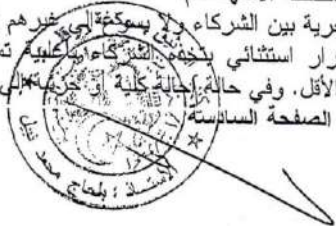 حرية بين الشركاء ولا يسوغ إلى غيرهم
رار استثنائي يتخذه الشركاء بأغلبية
الأقل، وفي حالة إحالة كلية أو جزئية إلى
الصفحة السادسة/
الأستاذ : بلحاج محمد نبيل